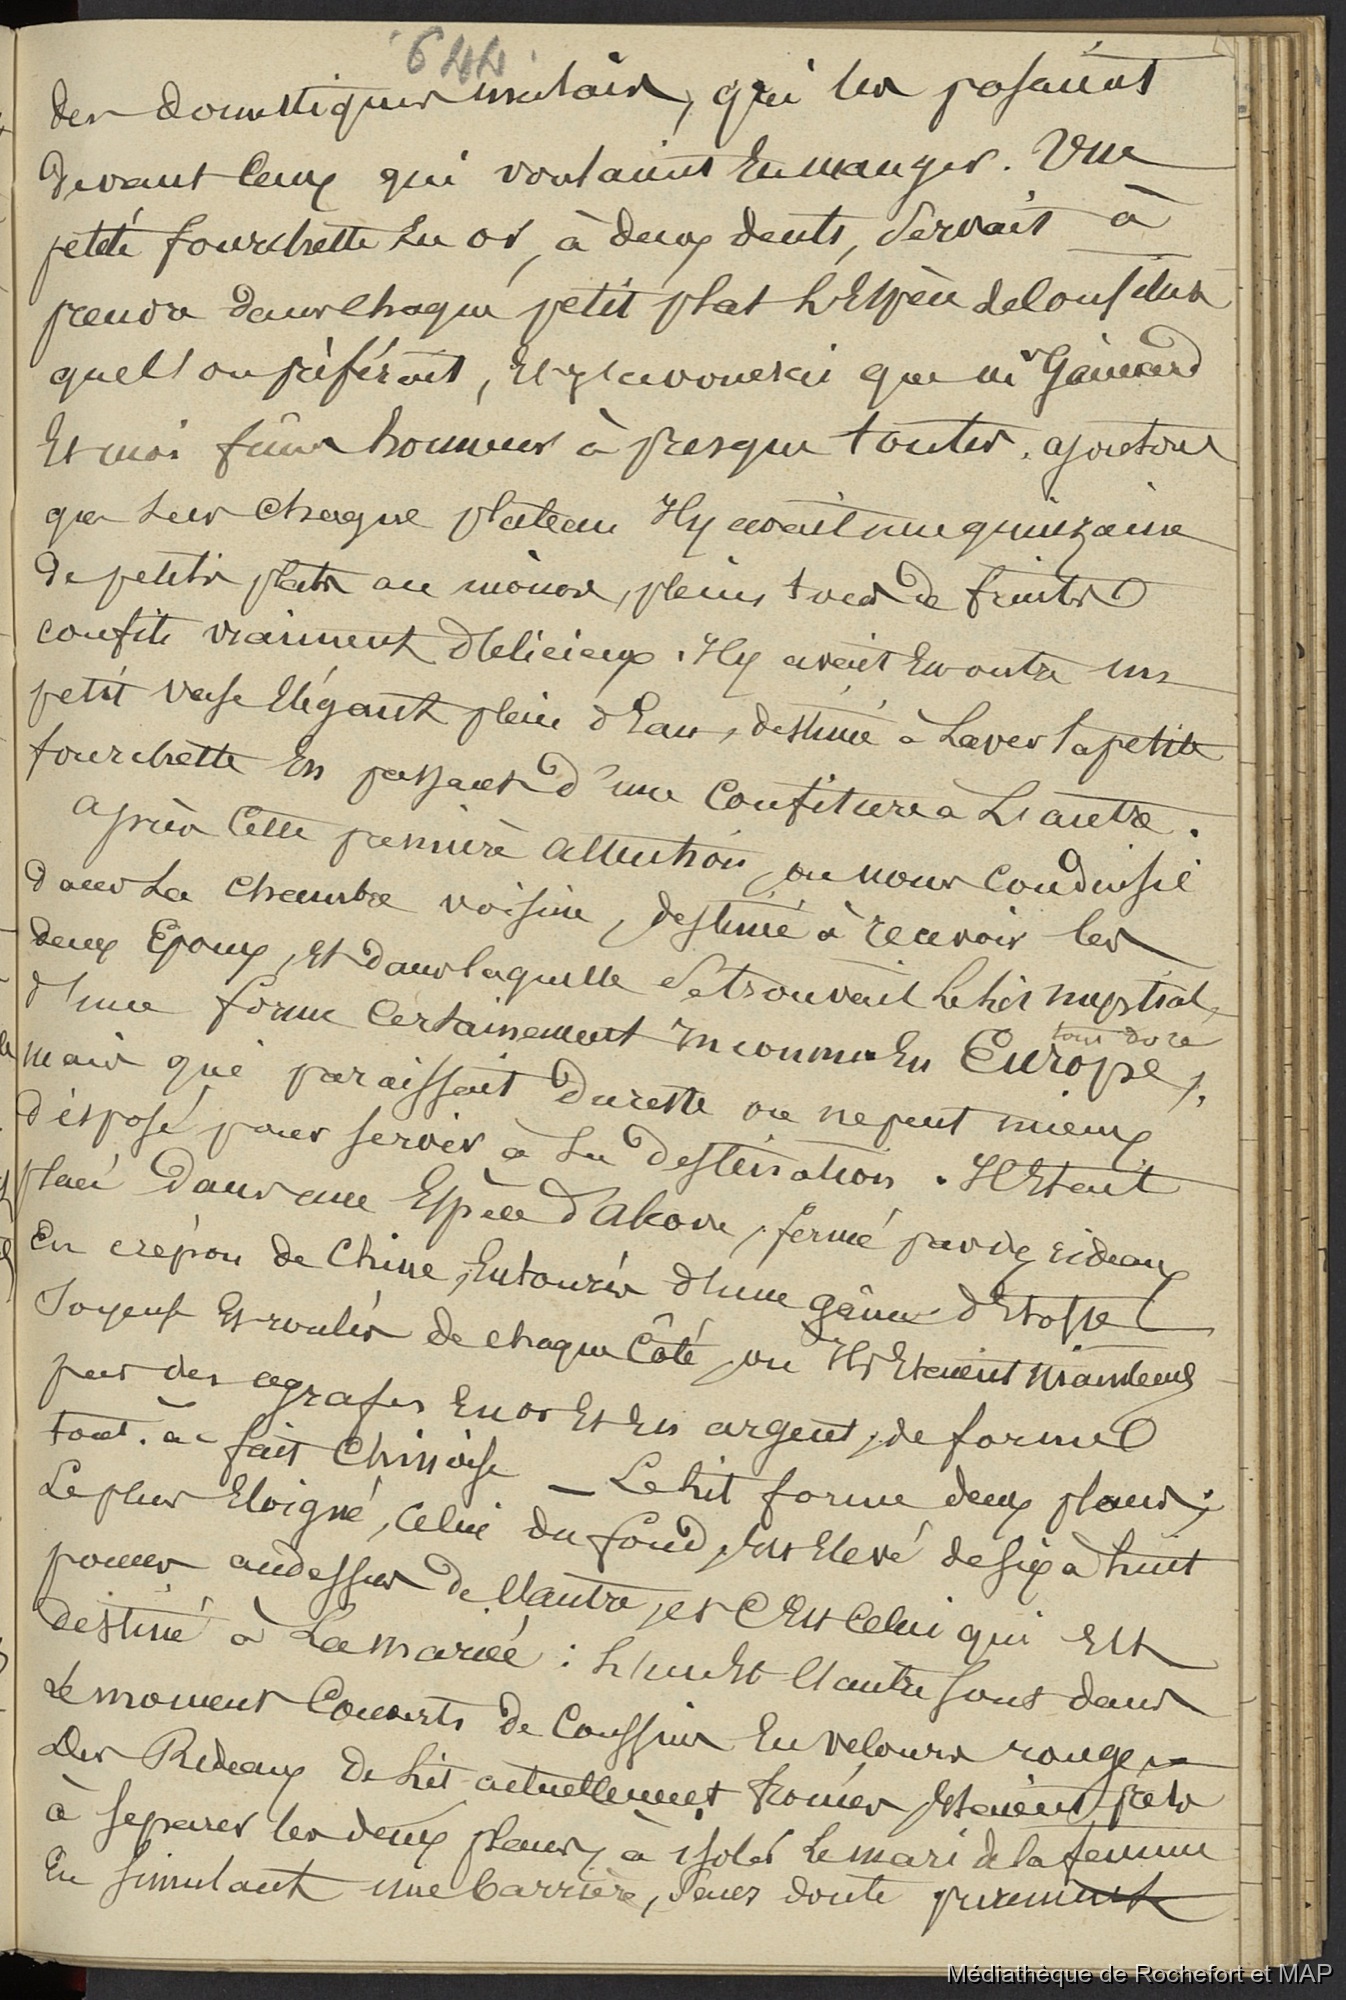 644
des domestiques malais, qui les posaient
devant ceux qui voulaient en manger. Une
petite fourchette en or, à deux dents, servait à
prendre dans chaque petit plat l'espèce de confiture
que l'on préférait, et j'avouerai que mr Gaimard
et moi fîmes honneur à presque toutes. ajoutons
que sur chaque plateau il y avait une quinzaine
de petits plats au moins, pleins tous de fruits
confits vraiment délicieux. Il y avait en outre un
petit vase élégant plein d'eau, destiné à laver la petite
fourchette en passant d'une confiture à l'autre.
après cette première attention, on nous conduisit
dans la chambre voisine, destinée à recevoir les
deux époux, et dans laquelle se trouvait le lit nuptial,
d'une forme certainement inconnue en Europe,
tout doré
mais qui paraissait du reste on ne peut mieux
disposé pour servir à sa destination. Il était
placé dans une espèce d'alcove, fermé par des rideaux
en crépon de Chine, entourés d'une gaîne d'étoffe
soyeuse et roulés de chaque côté, où ils étaient maintenus
par des agrafes en or et en argent, de forme
tout-à-fait chinoise _ Le lit forme deux plans;
le plus éloigné, celui du fond, est élevé de six à huit
pouces audessus de l'autre, et c'est celui qui est
destiné à la mariée: l'un et l'autre sont dans
le moment couverts de coussins en velours rouge _
Des Rideaux de lit actuellement fermés, étaient prêts
à séparer les deux plans, à isoler le mari de la femme
en simulant une barrière, sans doute purement
Médiathèque de Rochefort et MAP